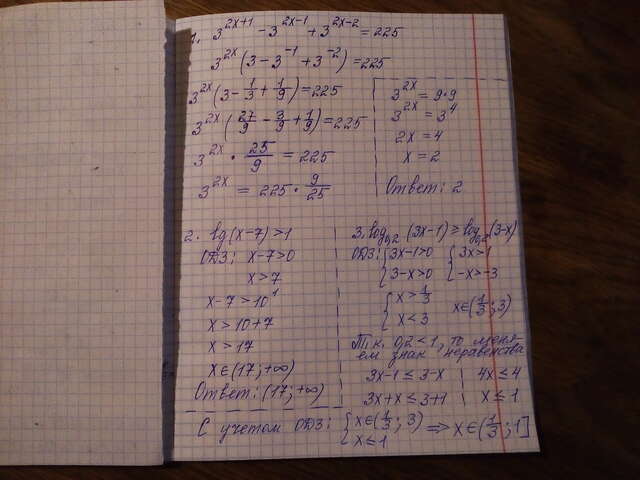 1. 3^(2x+1) - 3^(2x-1) + 3^(2x-2) = 225
3^(2x) (3 - 3^(-1) + 3^(-2)) = 225
3^(2x) (3 - 1/3 + 1/9) = 225
3^(2x) (27/9 - 3/9 + 1/9) = 225
3^(2x) · 25/9 = 225
3^(2x) = 225 · 9/25
3^(2x) = 9·9
3^(2x) = 3^4
2x = 4
x = 2
Ответ: 2
2. lg(x-7) > 1
ОДЗ: x-7>0
x>7
x-7>10^1
x>10+7
x>17
x∈(17; +∞)
Ответ: (17; +∞)
3. log_0,2 (3x-1) ≥ log_0,2 (3-x)
ОДЗ: { 3x-1>0 { 3x>1
3-x>0 -x>-3
{ x>1/3
x<3 x∈(1/3; 3)
Т.к. 0,2<1, то меня-
ем знак неравенства
3x-1≤3-x | 4x≤4
3x+x≤3+1 | x≤1
С учетом ОДЗ: { x∈(1/3; 3) ⇒ x∈(1/3; 1]
x≤1